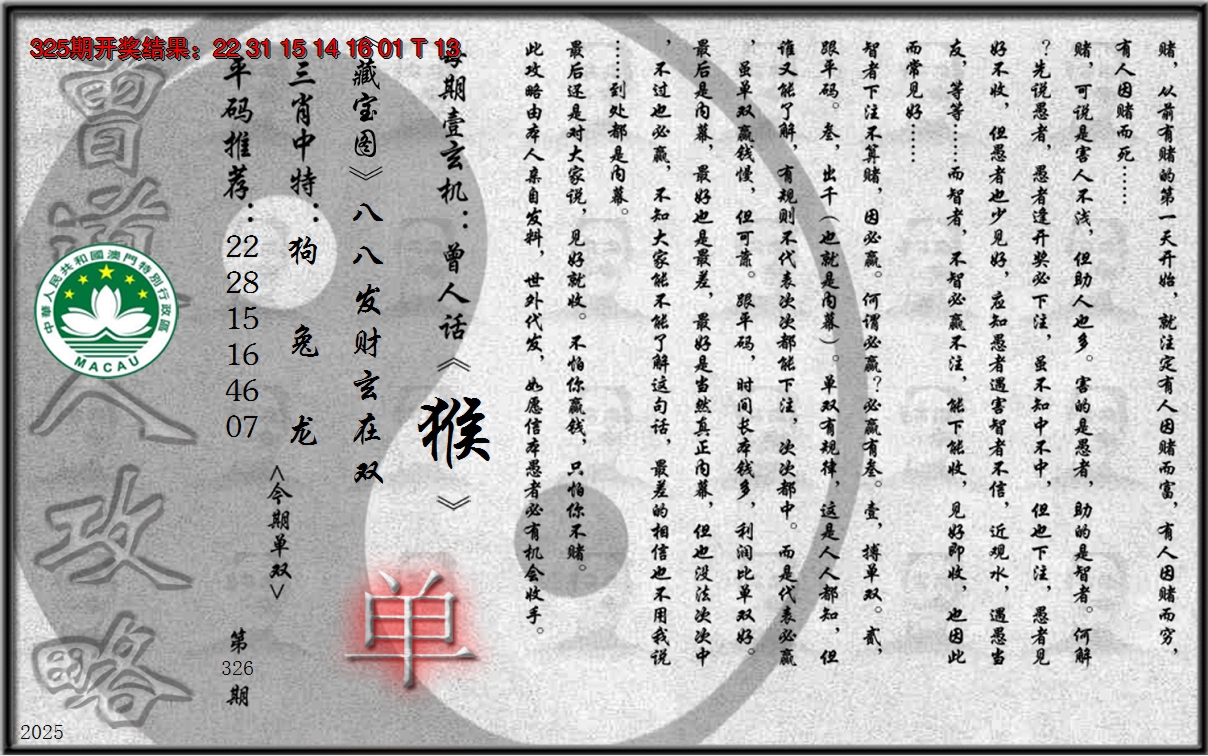 325期开奖结果：22 31 15 14 16 01 T 13
赌，从前有赌的第一天开始，就注定有人因赌而富，有人因赌而穷，
有人因赌而死……
赌，可说是害人不浅，但助人也多。害的是愚者，助的是智者。何解
？先说愚者，愚者逢开奖必下注，虽不知中不中，但也下注，愚者见
好不收，但愚者也少见好，应知愚者遇害智者不信，近观水，遇愚当
友，等等……而智者，不智必赢不注，能下能收，见好即收，也因此
而常见好……
智者下注不算赌，因必赢。何谓必赢？必赢有叁。壹，搏单双。贰，
跟平码。叁，出千（也就是内幕）。单双有规律，这是人人都知，但
谁又能了解，有规则不代表次次都能下注，次次都中。而是代表必赢
，虽单双赢钱慢，但可靠。跟平码，时间长本钱多，利润比单双好。
最后是内幕，最好也是最差，最好是当然真正内幕，但也没法次次中
，不过也必赢，不知大家能不能了解这句话，最差的相信也不用我说
……到处都是内幕。
最后还是对大家说，见好就收。不怕你赢钱，只怕你不赌。
此攻略由本人亲自发料，世外代发，如愿信本愚者必有机会收手。
每期壹玄机：曾人话《猴》
《藏宝图》八八发财玄在双
单
三肖中特：狗 兔 龙
<今期单双>
平码推荐：22 28 15 16 46 07
第326期
曾道人攻略
中華人民共和國澳門特別行政區
MACAU
2025